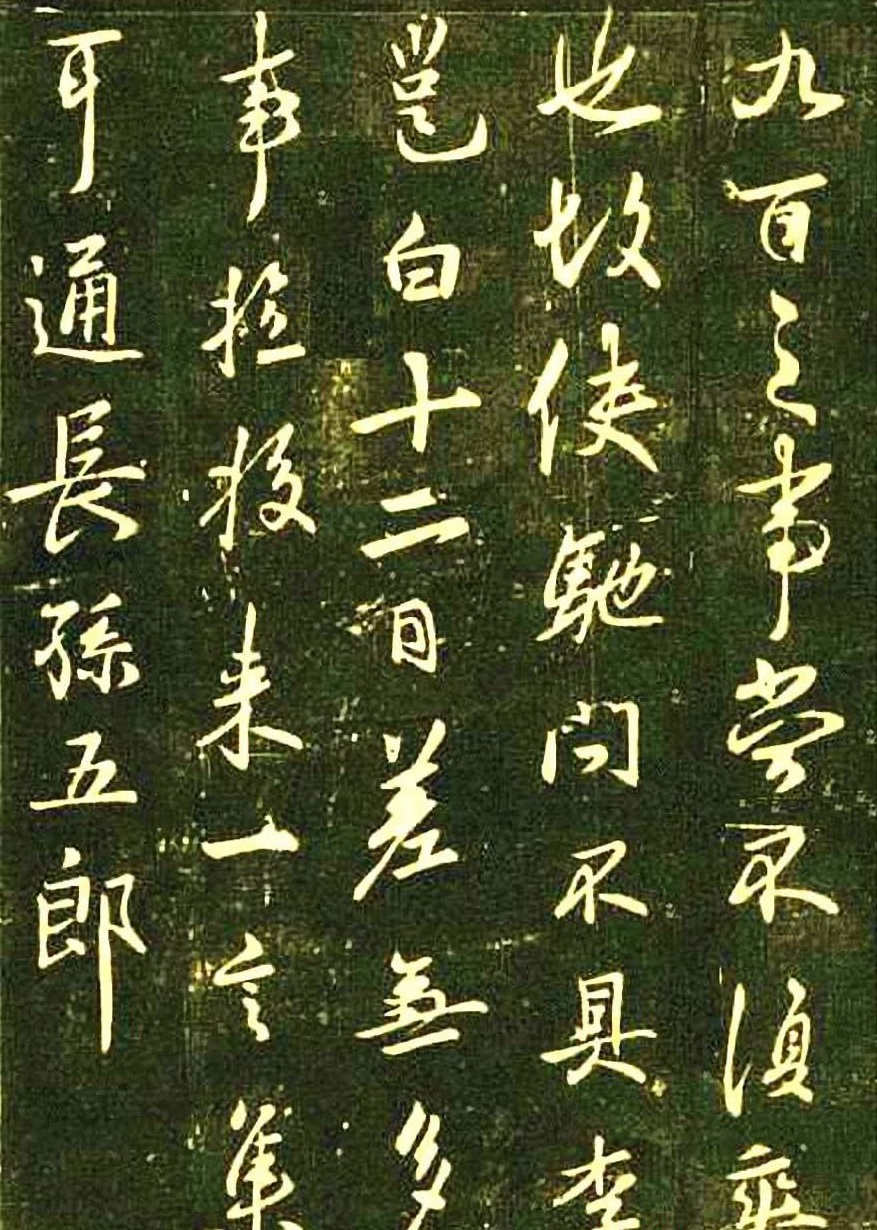 九百之事當不須
也故使馳問不具李
邕白十二日差無多
事来一言集
耳通長孫五郎